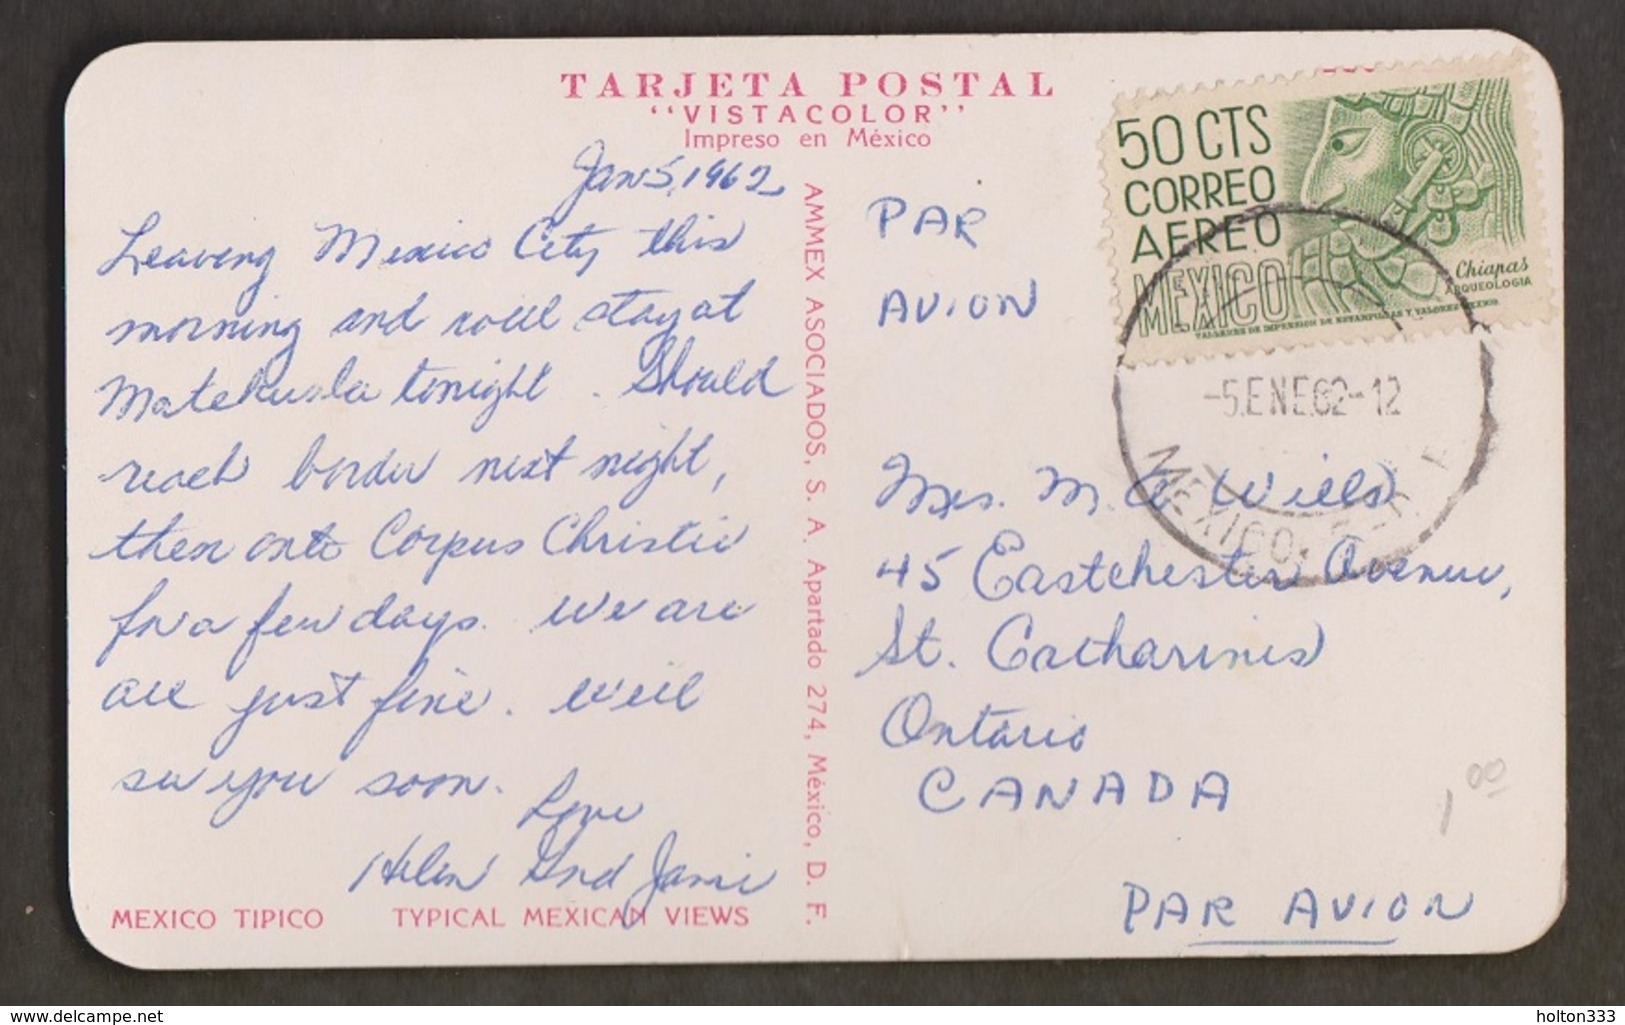 TARJETA POSTAL
"VISTACOLOR"
Impreso en México
Jan 5, 1962
Leaving Mexico City this
morning and will stay at
Matehuala tonight. Should
reach border next night,
then onto Corpus Christie
for a few days. We are
all just fine. Will
see you soon.
Love
Helen and Jamie
MEXICO TIPICO TYPICAL MEXICAN VIEWS
AMMEX ASOCIADOS, S. A. Apartado 274, México, D. F.
50 CTS
CORREO
AEREO
MEXICO
Chiapas
ARQUEOLOGIA
TALLERES DE IMPRESION DE ESTAMPILLAS Y VALORES-MEXICO
-5.ENE.62-12
MEXICO,
PAR
AVION
Mrs. M. A. Wills
45 Eastchester Avenue,
St. Catharines
Ontario
CANADA
1 00
PAR AVION
www.delcampe.net
holton333